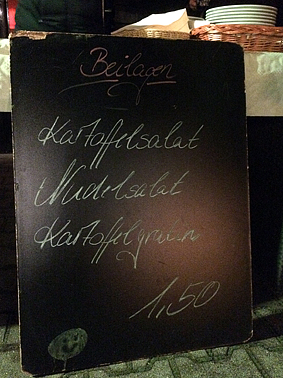 Beilagen
Kartoffelsalat
Nudelsalat
1,50